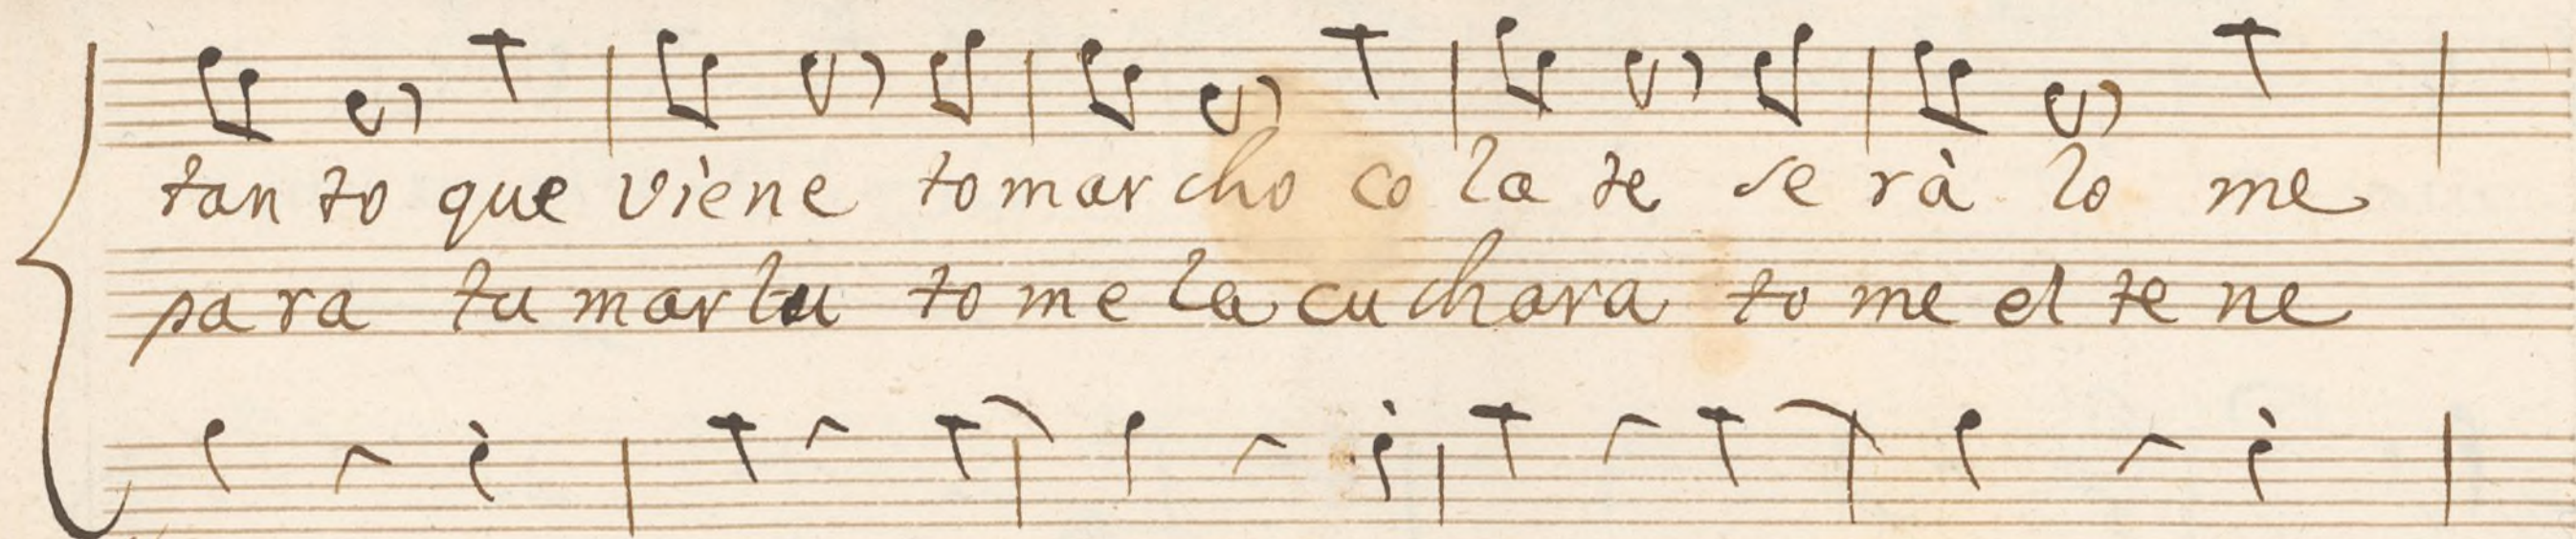 tan to que viene to mar cho co la te se rà lo me
pa ra tu mar lu to me la cu chara to me el te ne